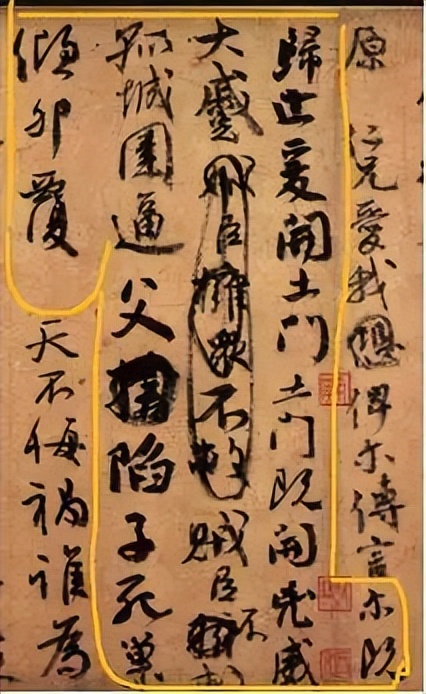 原 仁兄愛我恐俾尔傳言尔既
歸止爰開土門土門既開兇威
大蹙賊臣擁眾不救賊臣不救
孤城圍逼父陷子死巢
傾卵覆天不悔禍誰為